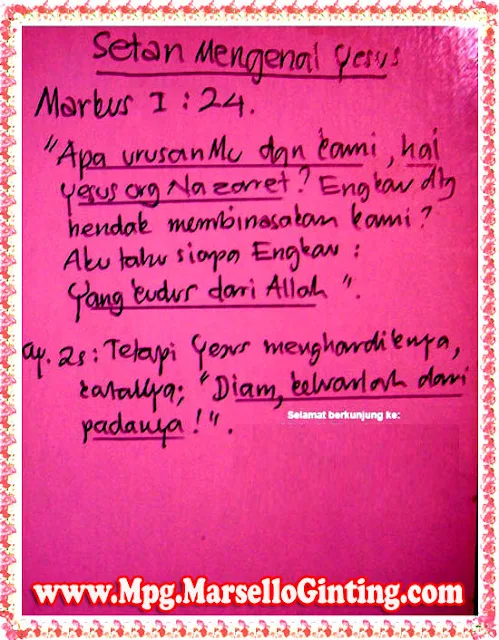 Setan Mengenal Yesus
Markus I : 24.
"Apa urusanMu dgn kami, hai
Yesus org Nazarret? Engkau dtg
hendak membinasakan kami?
Aku tahu siapa Engkau :
Yang kudus dari Allah".
ay. 25: Tetapi Yesus menghardiknya,
kataNya; "Diam, keluarlah dari
padanya!".
Selamat berkunjung ke:
www.Mpg.MarselloGinting.com